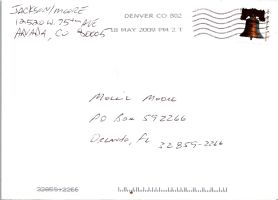 JACKSON/MOORE
12520 W. 75th AVE
ARVADA, CO 80005
DENVER CO 802
18 MAY 2009 PM 2 T
Mollie Moore
PO Box 592266
Orlando, FL
32859-2266
32859+2266